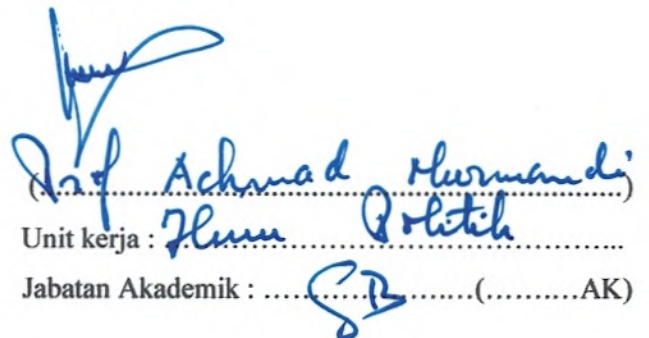 (Prof Achmad Nurmandi)
Unit kerja : Ilmu Politik
Jabatan Akademik : GB (..........AK)